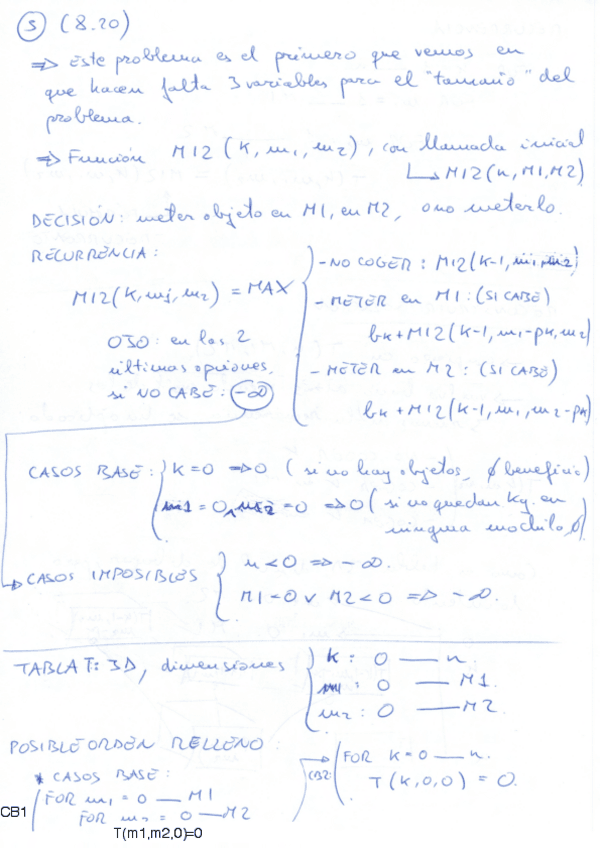 5 (8.20)
⇒ Este problema es el primero que vemos en
que hacen falta 3 variables para el "tamaño" del
problema.
⇒ Función M12 (k, m1, m2), con llamada inicial
↳ M12(n, M1, M2)
DECISIÓN: meter objeto en M1, en M2, o no meterlo.
RECURRENCIA:
M12(k, m1, m2) = MAX
- NO COGER: M12(k-1, m1, m2)
- METER en M1: (SI CABE)
bk + M12(k-1, m1-pk, m2)
- METER en M2: (SI CABE)
bk + M12(k-1, m1, m2-pk)
OJO: en las 2
últimas opciones,
si NO CABE: -∞
CASOS BASE: k=0 ⇒ 0 (si no hay objetos, ∅ beneficio)
m1=0 ∧ m2=0 ⇒ 0 (si no quedan kg. en
ninguna mochila, 0)
CASOS IMPOSIBLES n<0 ⇒ -∞.
M1<0 ∨ M2<0 ⇒ -∞.
TABLA T: 3D, dimensiones k: 0 — n.
m1: 0 — M1.
m2: 0 — M2
POSIBLE ORDEN RELLENO:
* CASOS BASE:
CB1 FOR m1 = 0 — M1
FOR m2 = 0 — M2
T(m1,m2,0)=0
CB2: FOR k=0 — n.
T(k,0,0) = 0.